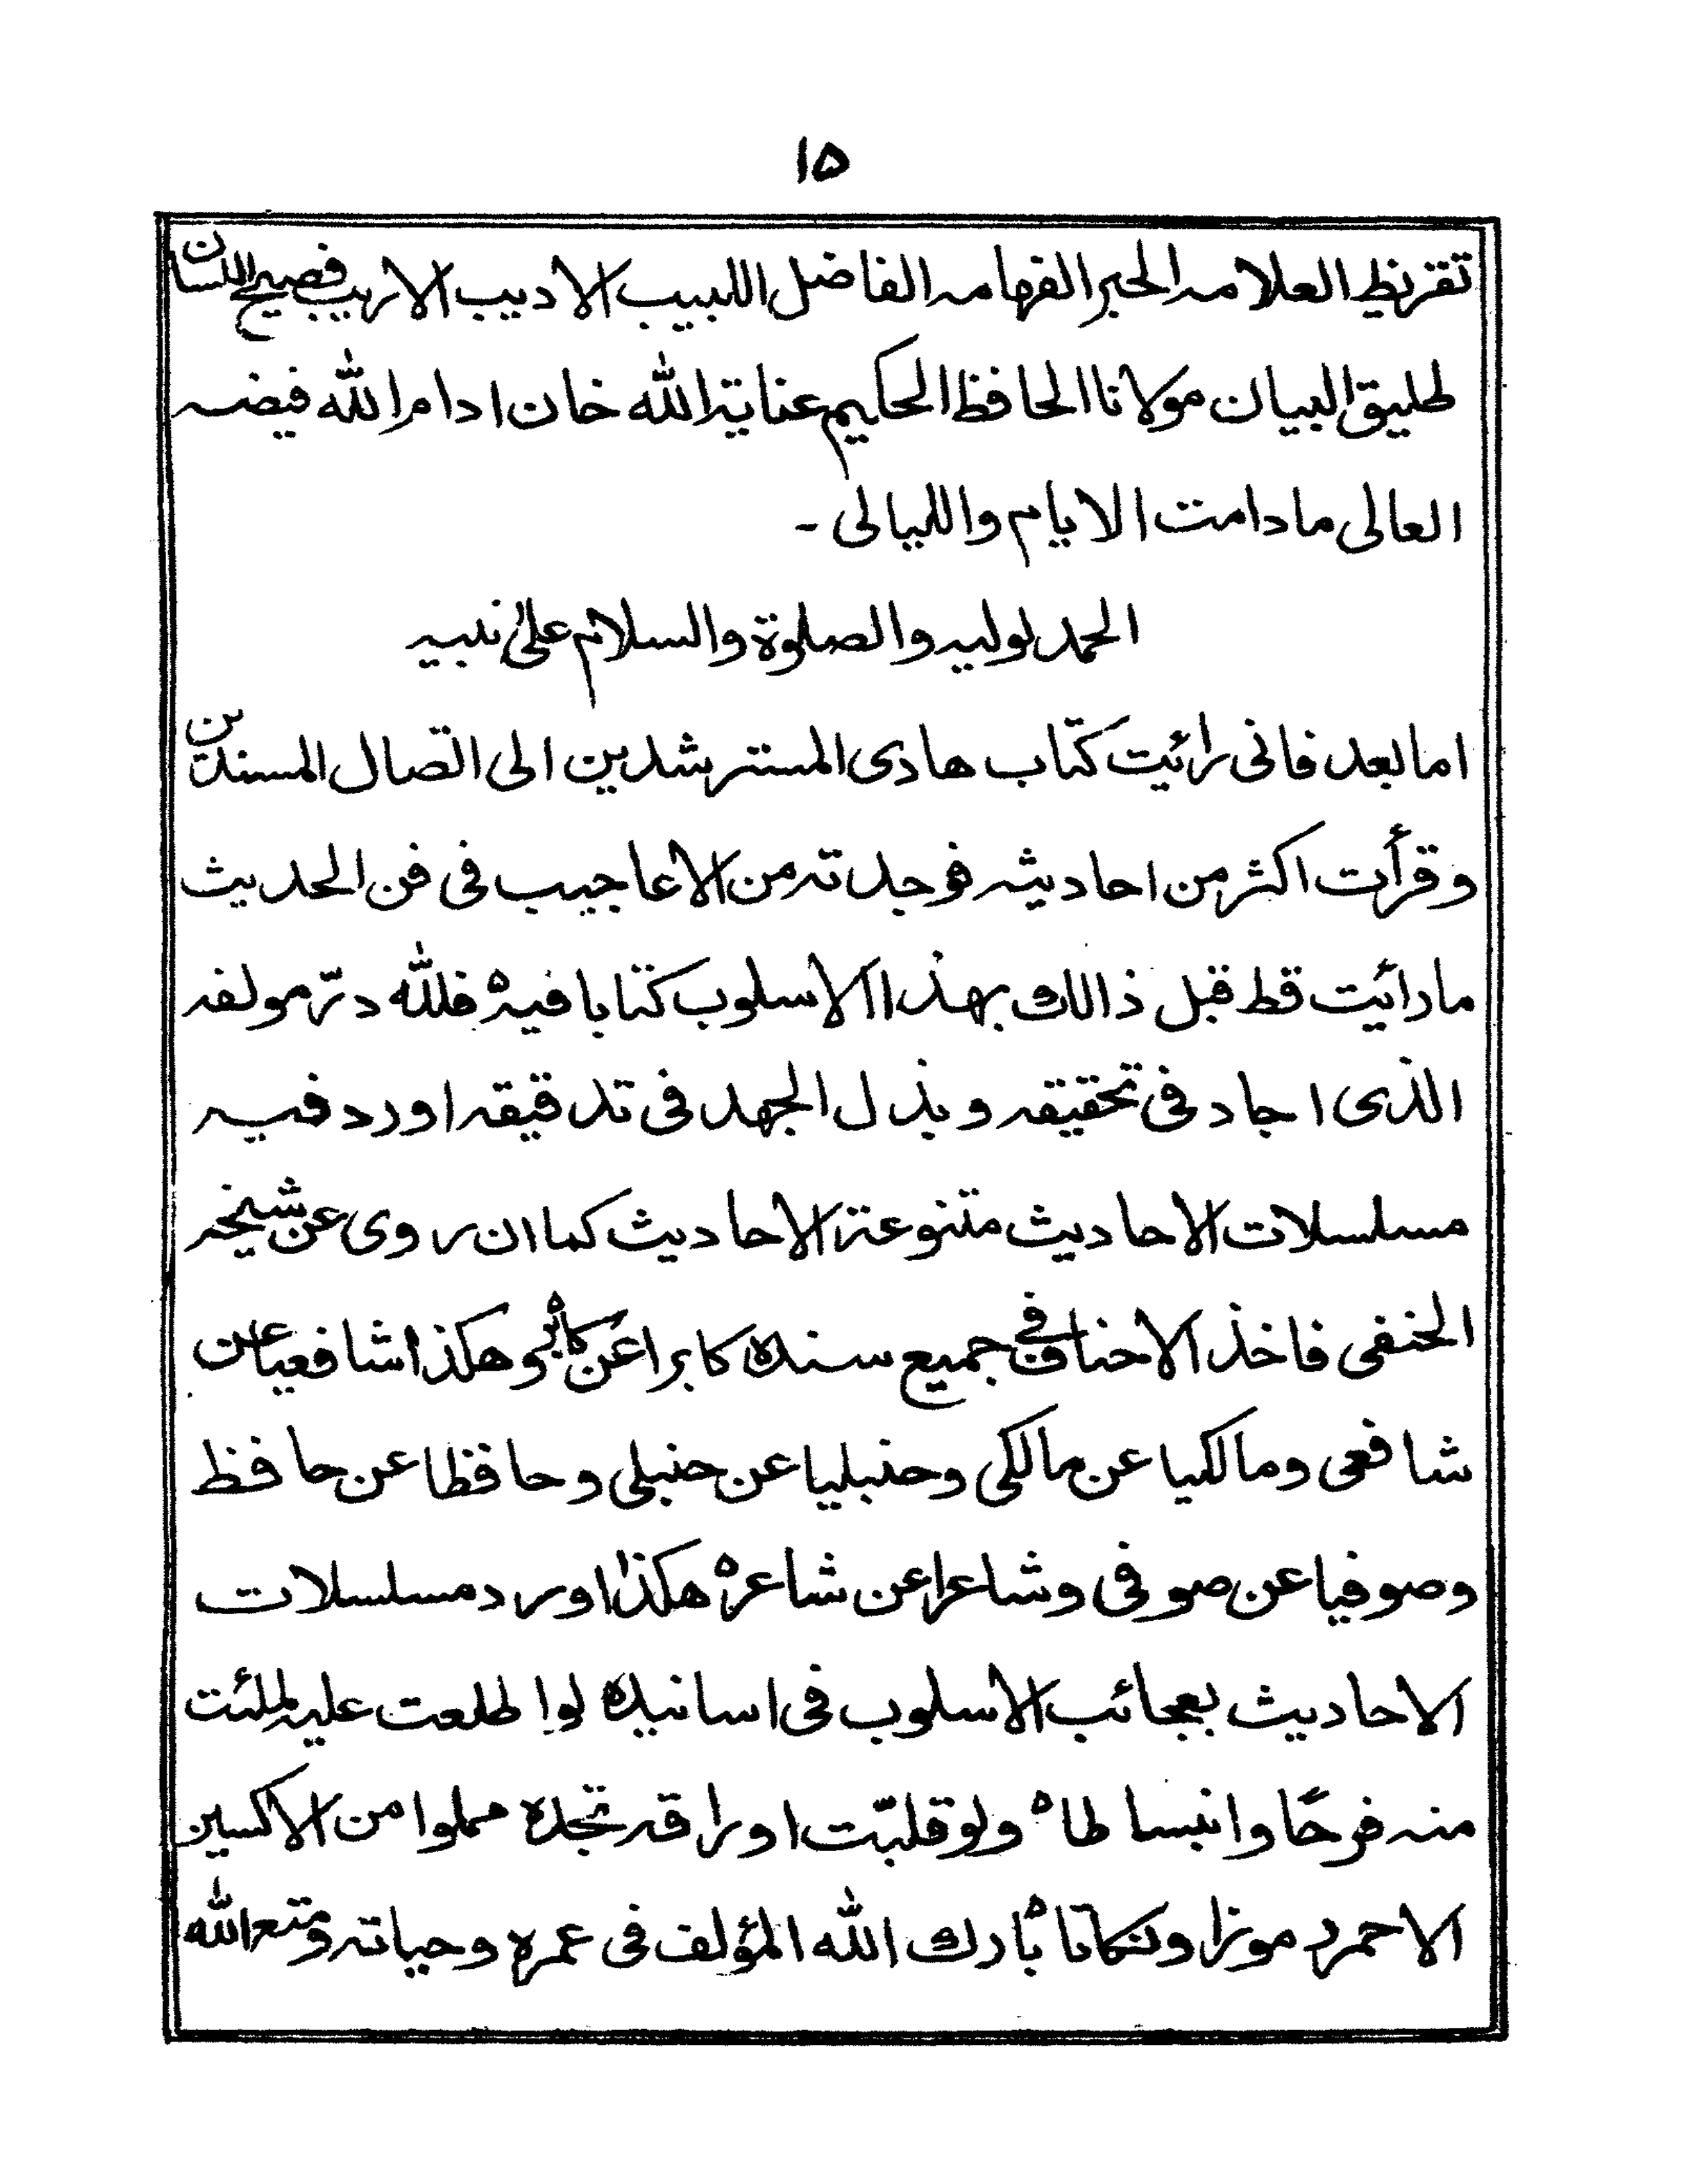 ۱۵
تقریظ العلامہ الحبر الفہامہ الفاضل اللبیب الادیب الاریب فصیح اللسان
طلیق البیان مولانا الحافظ الحکیم عنایۃ اللہ خان ادام اللہ فیضہ
العالی مادامت الایام واللیالی ۔
الحمد لولیہ والصلوۃ والسلام علیٰ نبیہ
اما بعد فانی رائیت کتاب ھادی المسترشدین الی اتصال المسندین
وقرأت اکثر من احادیثہ فوجدتہ من الاعاجیب فی فن الحدیث
مارائیت قط قبل ذالک بہذا الاسلوب کتابا فیہ فللّٰہ درّ مولفہ
الذی اجاد فی تحقیقہ وبذل الجہد فی تدقیقہ اورد فیہ
مسلسلات الاحادیث متنوعۃ الاحادیث کما ان روی عن شیخہ
الحنفی فاخذ الاحناف فی جمیع سندہ کابرا عن کابر وھکذا شافعیا عن
شافعی ومالکیا عن مالکی وحنبلیا عن حنبلی وحافظا عن حافظ
وصوفیا عن صوفی وشاعرا عن شاعر ھکذا اورد مسلسلات
الاحادیث بعجائب الاسلوب فی اسانیدہ لو اطلعت علیہ لملئت
منہ فرحًا وانبساطا ولو قلبّت اوراقہ تجدہ مملوا من الاکسیر
الاحمر رموزا ونکاتا بارک اللہ المؤلف فی عمرہ وحیاتہ ومتع اللہ